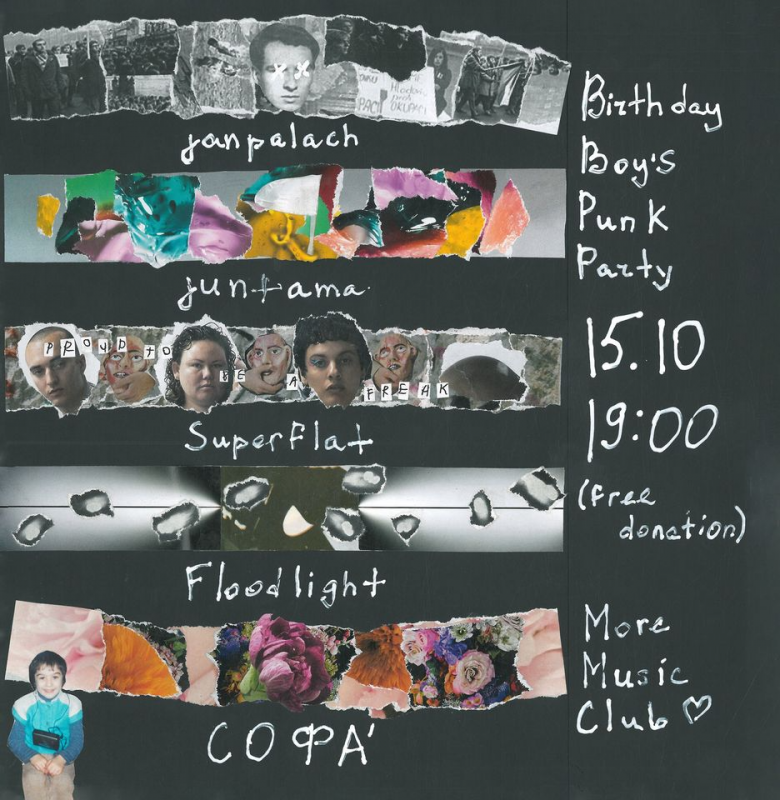 janpalach
juntama
PROUD TO
BE A
FREAK
Superflat
Floodlight
СОФА'
Birthday
Boy's
Punk
Party
15.10
19:00
(free
donation)
More
Music
Club ♡